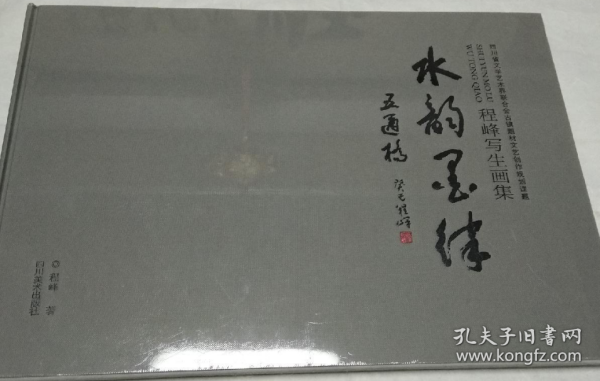 四川省文学艺术界联合会古镇新村文艺创作规划课题
SHUI YUN MO LU
WU TONG QIAO
程峰写生画集
水韵墨律
五通桥
癸巳程峰
◎程峰 著
四川美术出版社
孔夫子旧书网
www.kongfz.com